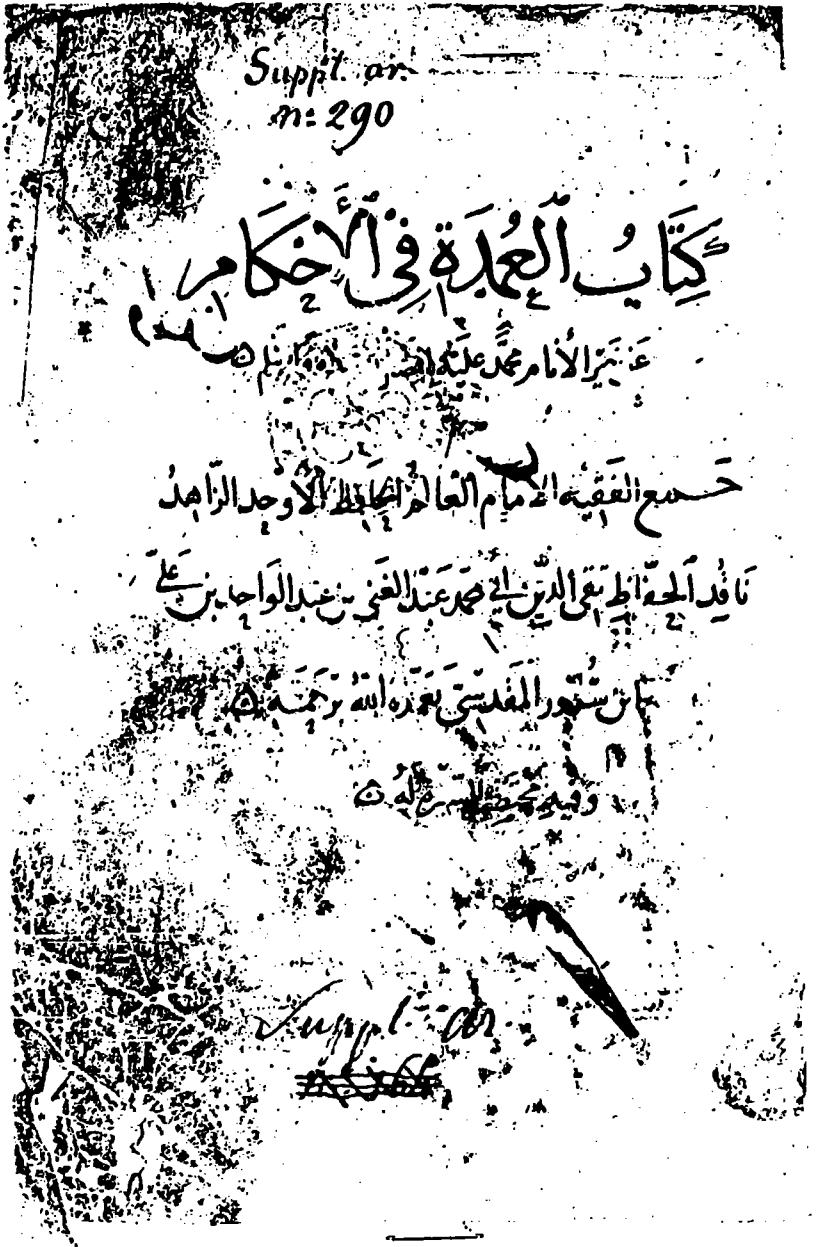 Suppl. ar.
n: 290
كِتَابُ ٱلْعُمْدَةِ فِي ٱلْأَحْكَامِ
عَن خَيْرِ الْأَنَامِ مُحَمَّدٍ عَلَيْهِ
جَمع الفَقِيْه الإمَام العَالم الحَافِظ الأَوْحَد الزَّاهِدُ
نَاقِد ٱلحفّاظِ تقى الدّين أبي محمَّد عَبْد الغَنِي بن عَبد الوَاحِد بن عَليّ
بن سُرُور المَقدِسيّ تغمّده اللهُ برَحمتِه
Suppl. ar.